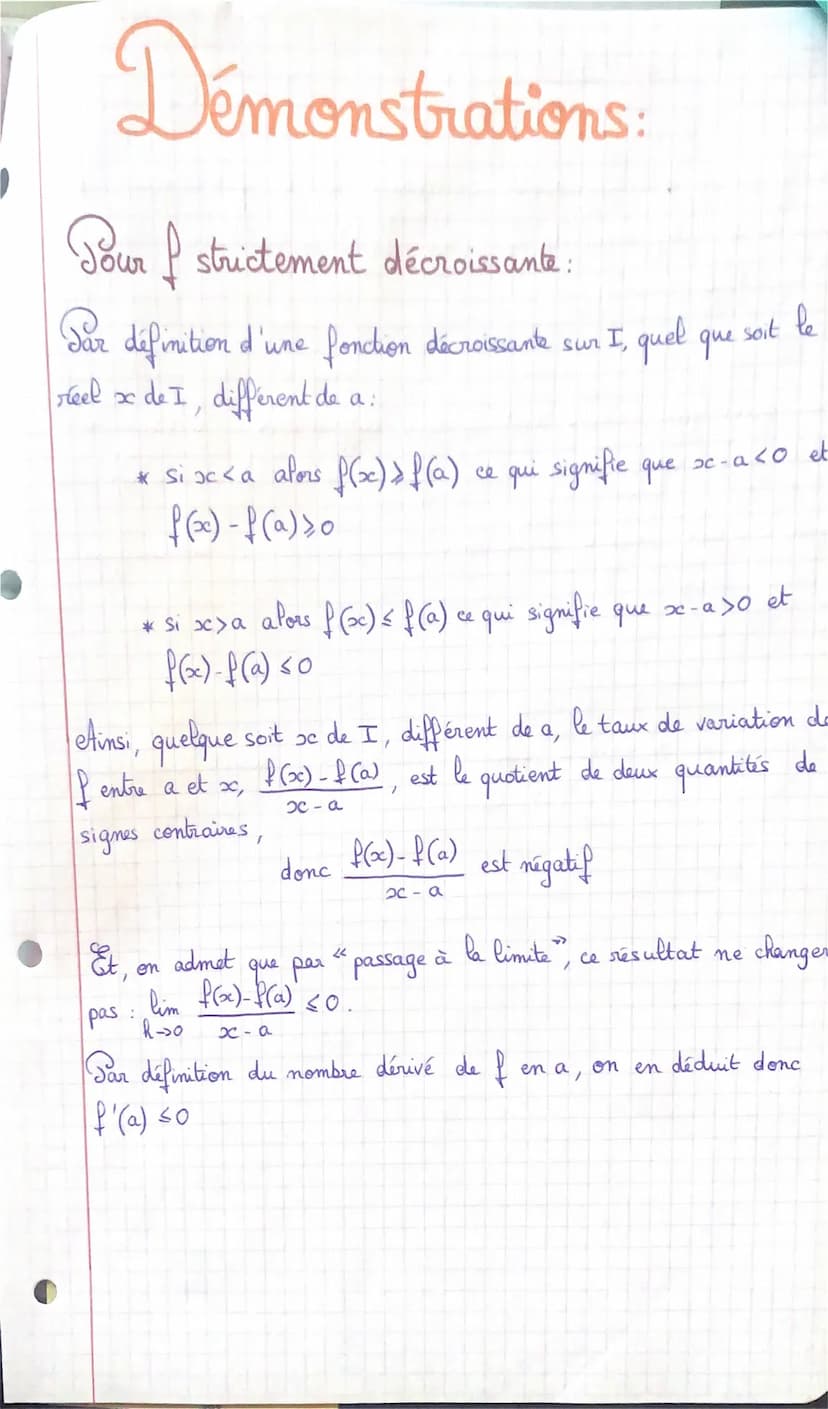 Démonstrations:
Pour f strictement décroissante :
Par définition d'une fonction décroissante sur I, quel que soit le
réel x de I, différent de a :
* si x<a alors f(x)⩾f(a) ce qui signifie que x-a<0 et
f(x)-f(a)⩾0
* si x>a alors f(x)⩽f(a) ce qui signifie que x-a>0 et
f(x)-f(a)⩽0
Ainsi, quelque soit x de I, différent de a, le taux de variation de
f entre a et x, (f(x)-f(a))/(x-a), est le quotient de deux quantités de
signes contraires,
donc (f(x)-f(a))/(x-a) est négatif
Et, on admet que par "passage à la limite", ce résultat ne changer
pas : lim h→0 (f(x)-f(a))/(x-a) ⩽0.
Par définition du nombre dérivé de f en a, on en déduit donc
f'(a) ⩽0